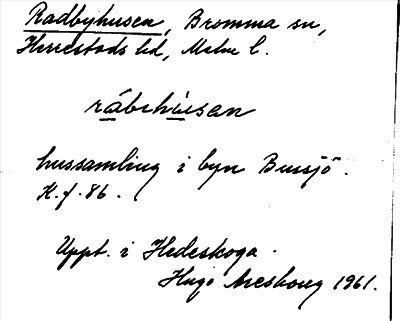 Radbyhusen, Bromma sn,
Herrestads hd, Malm l.
råbehúsan
hussamling i byn Bussjö.
K. f. 86.
Uppt. i Hedeskoga.
Hugo Areskoug 1961.